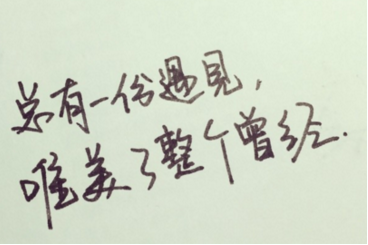 总有一份遇见，
唯美了整个曾经.